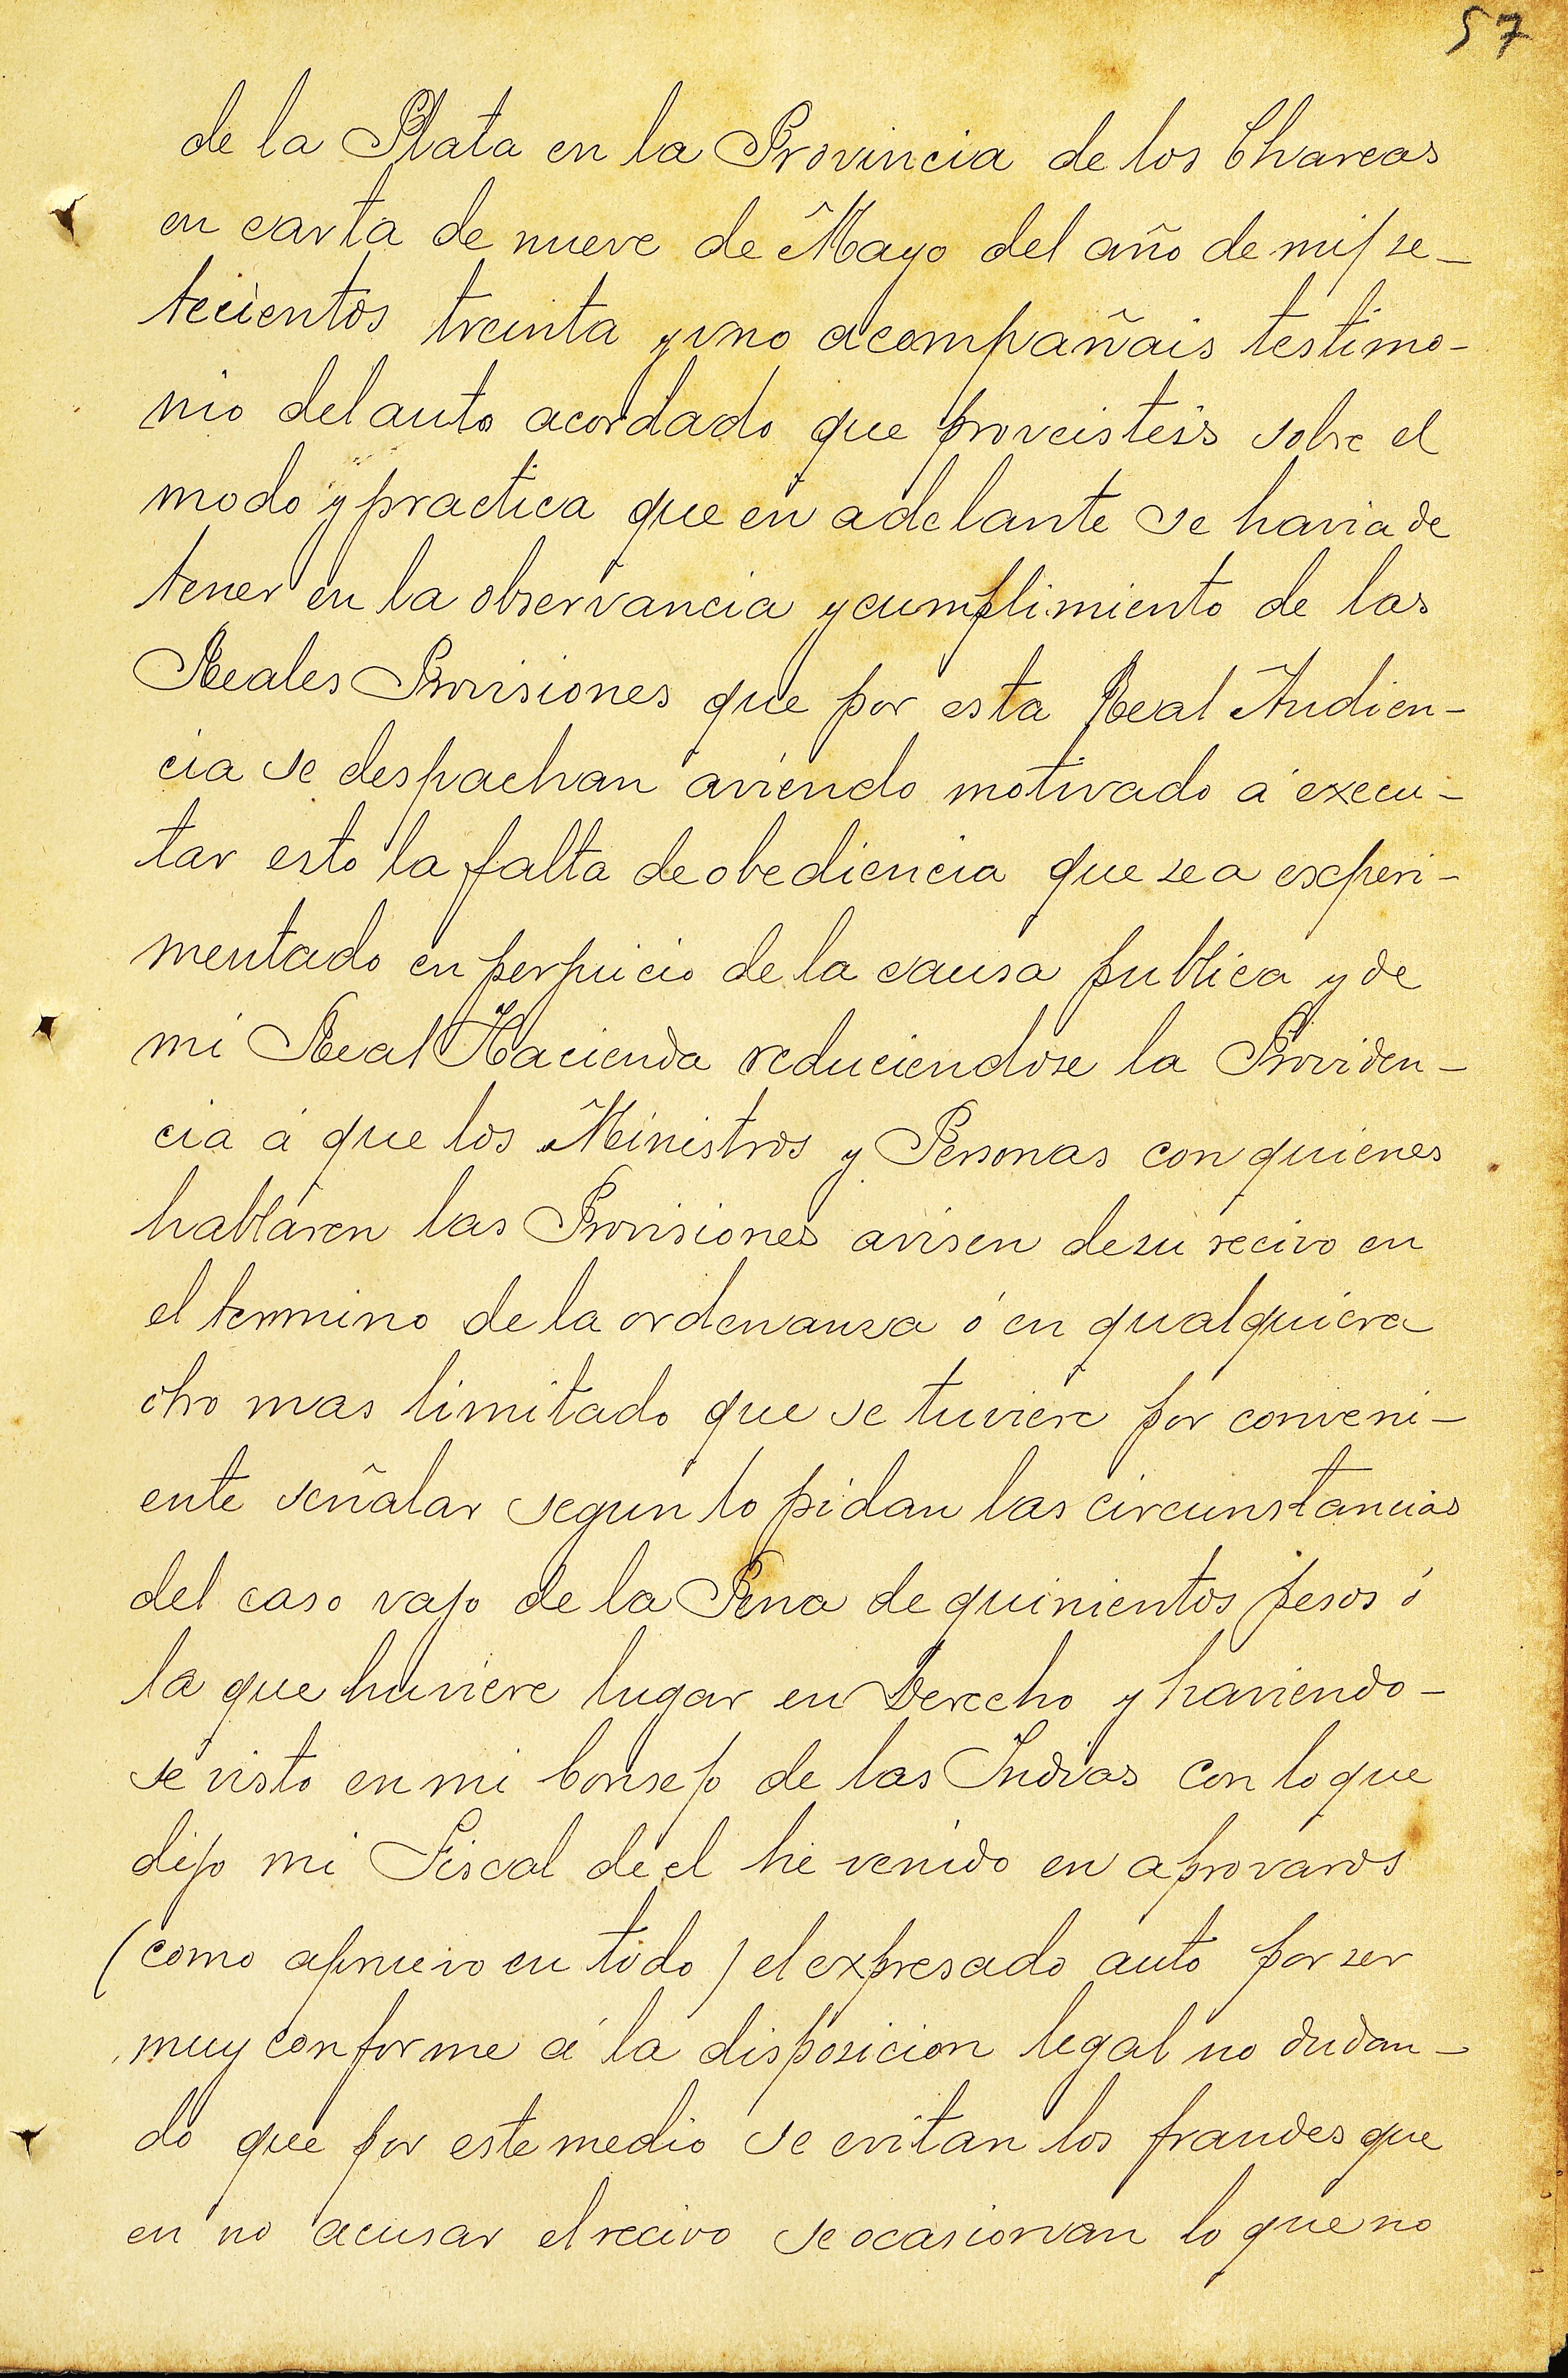 57
de la Plata en la Provincia de los Charcas
en carta de nueve de Mayo del año de mil se-
tecientos treinta y uno acompañais testimo-
nio del auto acordado que proveisteis sobre el
modo y practica que en adelante se havia de
tener en la observancia y cumplimiento de las
Reales Provisiones que por esta Real Audien-
cia se despachan aviendo motivado á execu-
tar esto la falta de obediencia que se a experi-
mentado en perjuicio de la causa publica y de
mi Real Hacienda reduciendose la Providen-
cia á que los Ministros y Personas con quienes
hablaren las Provisiones avisen de su recivo en
el termino de la ordenanza ó en qualquiera
otro mas limitado que se tuviere por conveni-
ente señalar segun lo pidan las circunstancias
del caso vajo de la Pena de quinientos pesos ó
la que huviere lugar en Derecho y haviendo-
se visto en mi Consejo de las Indias con lo que
dijo mi Fiscal de el hé venido en aprovaros
(como apruevo en todo) el expresado auto por ser
muy conforme á la disposicion legal no dudan-
do que por este medio se evitan los fraudes que
en no acusar el recivo se ocasionvan lo que no